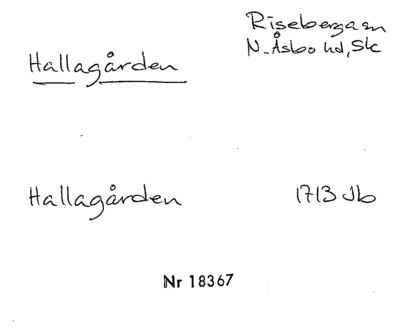 Riseberga sn
N. Åsbo hd, Sk
Hallagården
Hallagården 1713 Jb
Nr 18367